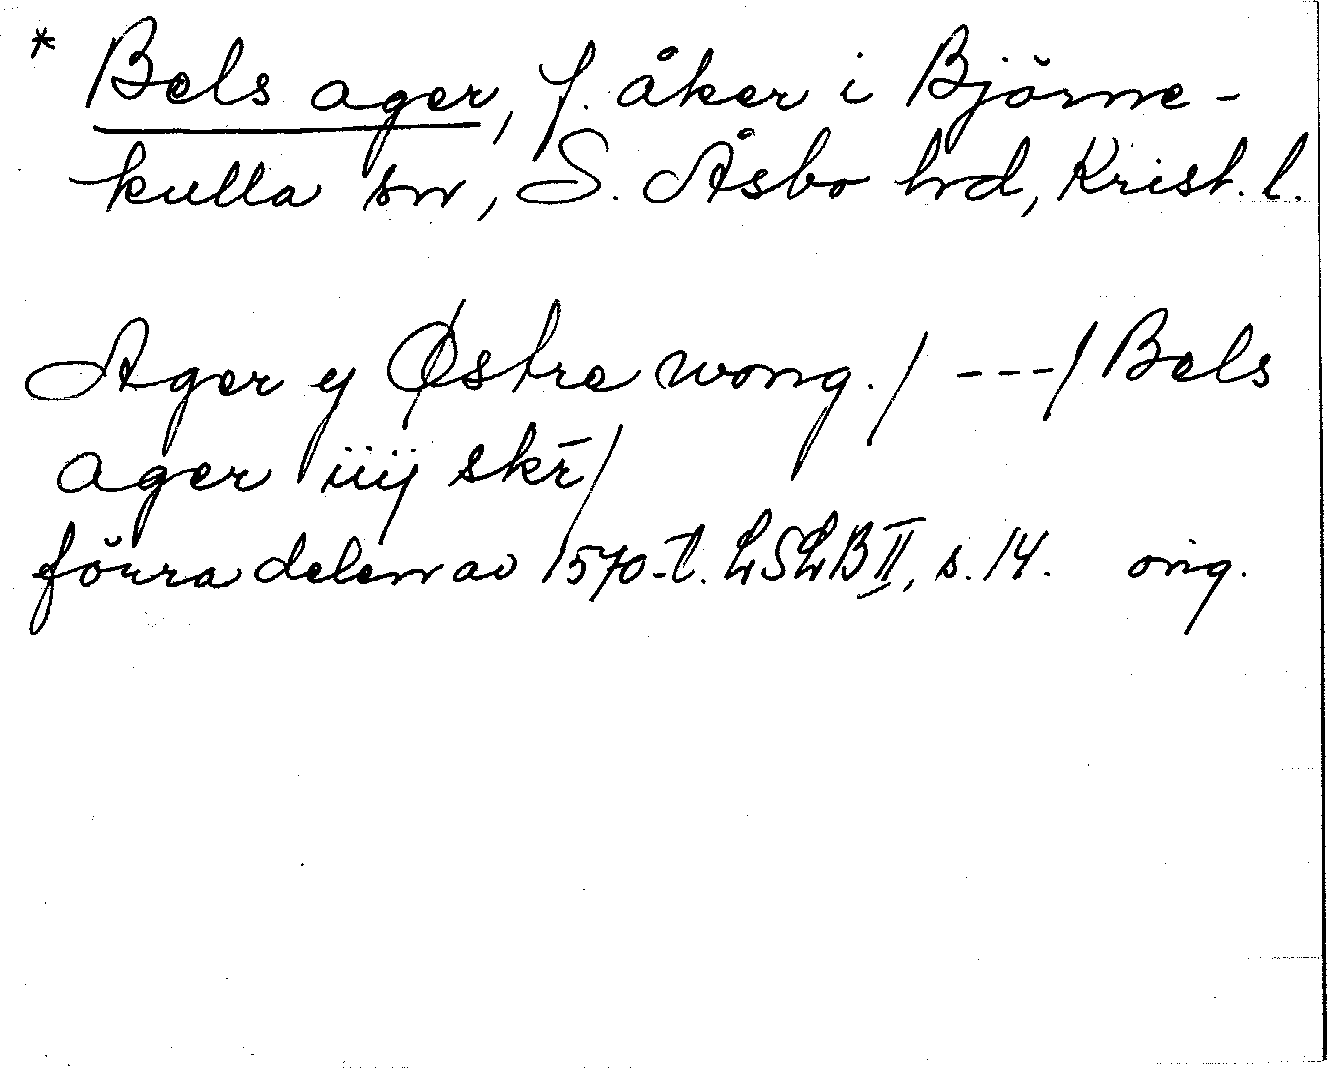 * Bels ager, f. åker i Björne-
kulla sn, S. Åsbo hd, Krist. l.
Ager y Østre wong. / --- / Bels
ager iiij skr̄ /
förra delen av 1570-t. LSLB II, s. 14. orig.